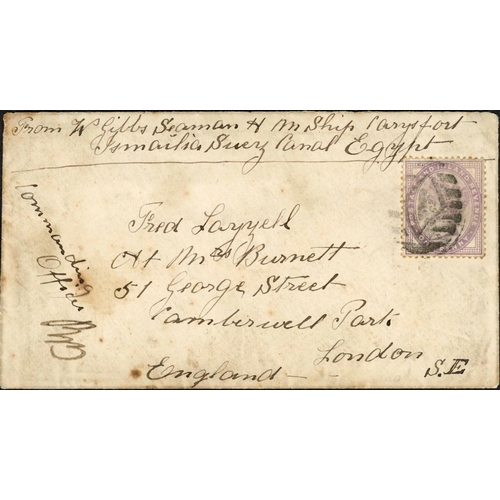 From W Gibbs Seaman H M Ship Carysfort
Ismailia Suez Canal Egypt
Commanding
Officer
Fred
At Mrs Burnett
51 George Street
Camberwell Park
London
S.E
England